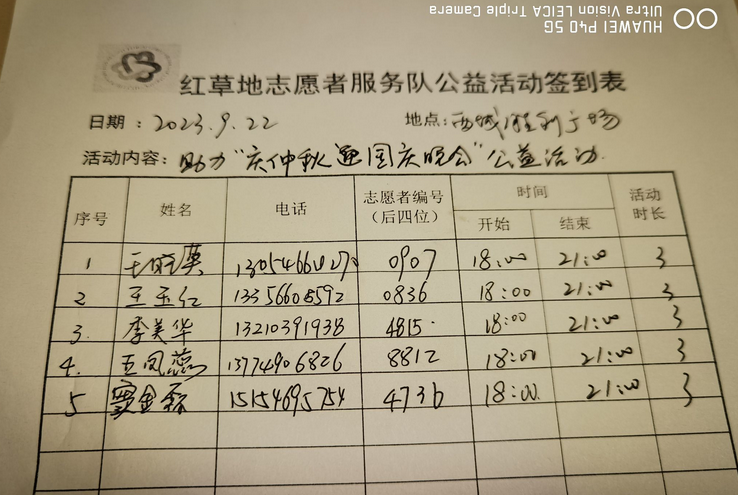 HUAWEI P40 5G
Ultra Vision LEICA Triple Camera
红草地志愿者服务队公益活动签到表
日期：2023.9.22 地点：西城胜利广场
活动内容：助力"庆仲秋迎国庆晚会"公益活动.
序号 姓名 电话 志愿者编号（后四位） 时间 开始 结束 活动时长
1 0907 18:00 21:00 3
2 王玉仁 13356608592 0836 18:00 21:00 3
3. 李美华 13210391938 4815 18:00 21:00 3
4. 王凤蕊 13774906826 8812 18:00 21:00 3
5 15154695754 4736 18:00. 21:00 3